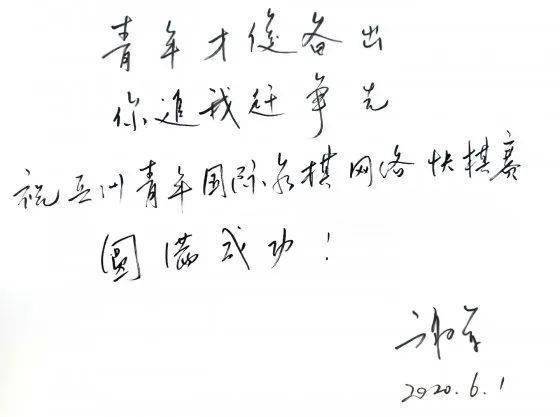 青年才俊备出
你追我赶争先
祝亚洲青年国际象棋网络快棋赛
圆满成功！
谢军
2020.6.1